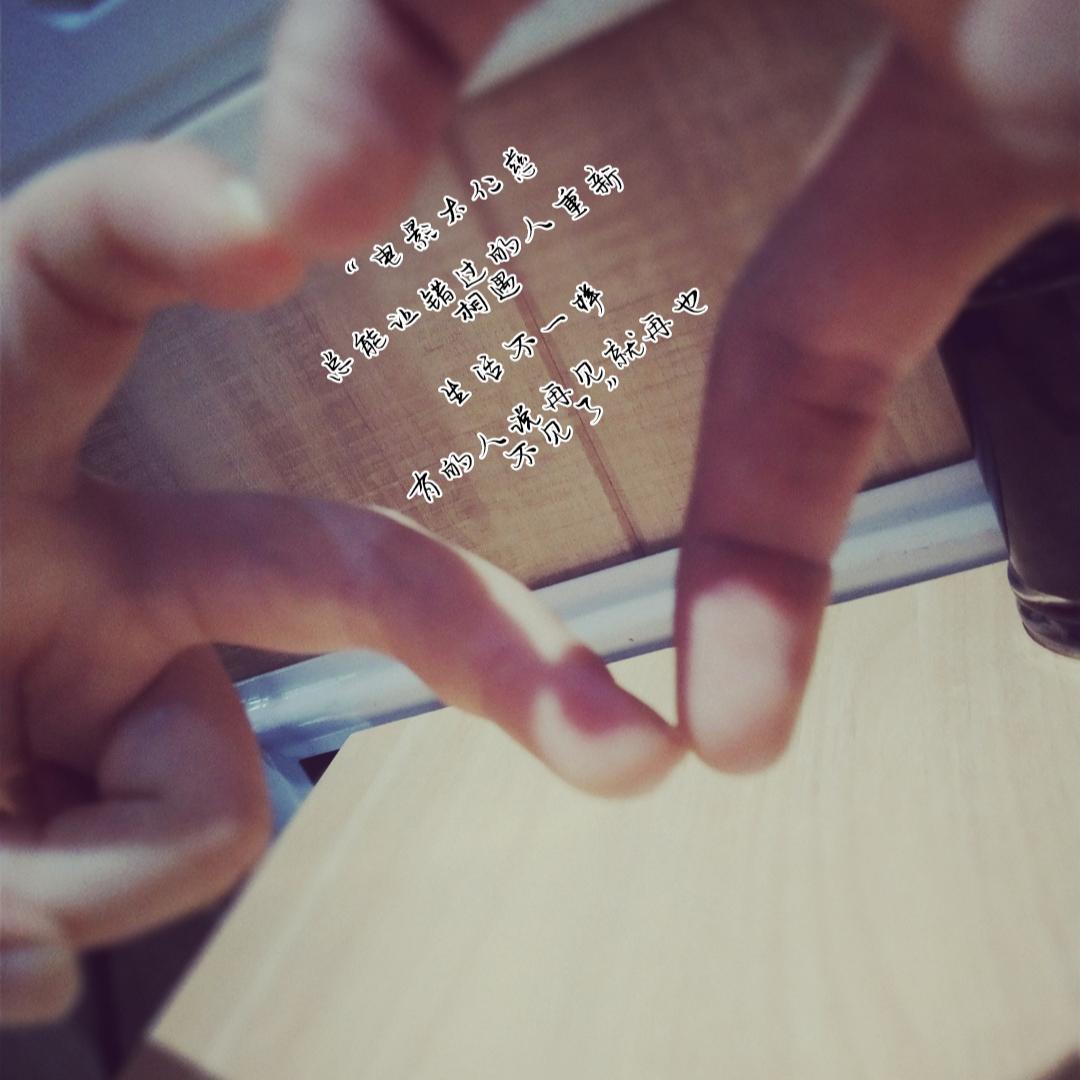 “电影太仁慈
总能让错过的人重新
相遇
生活不一样
有的人说再见就再也
不见了”